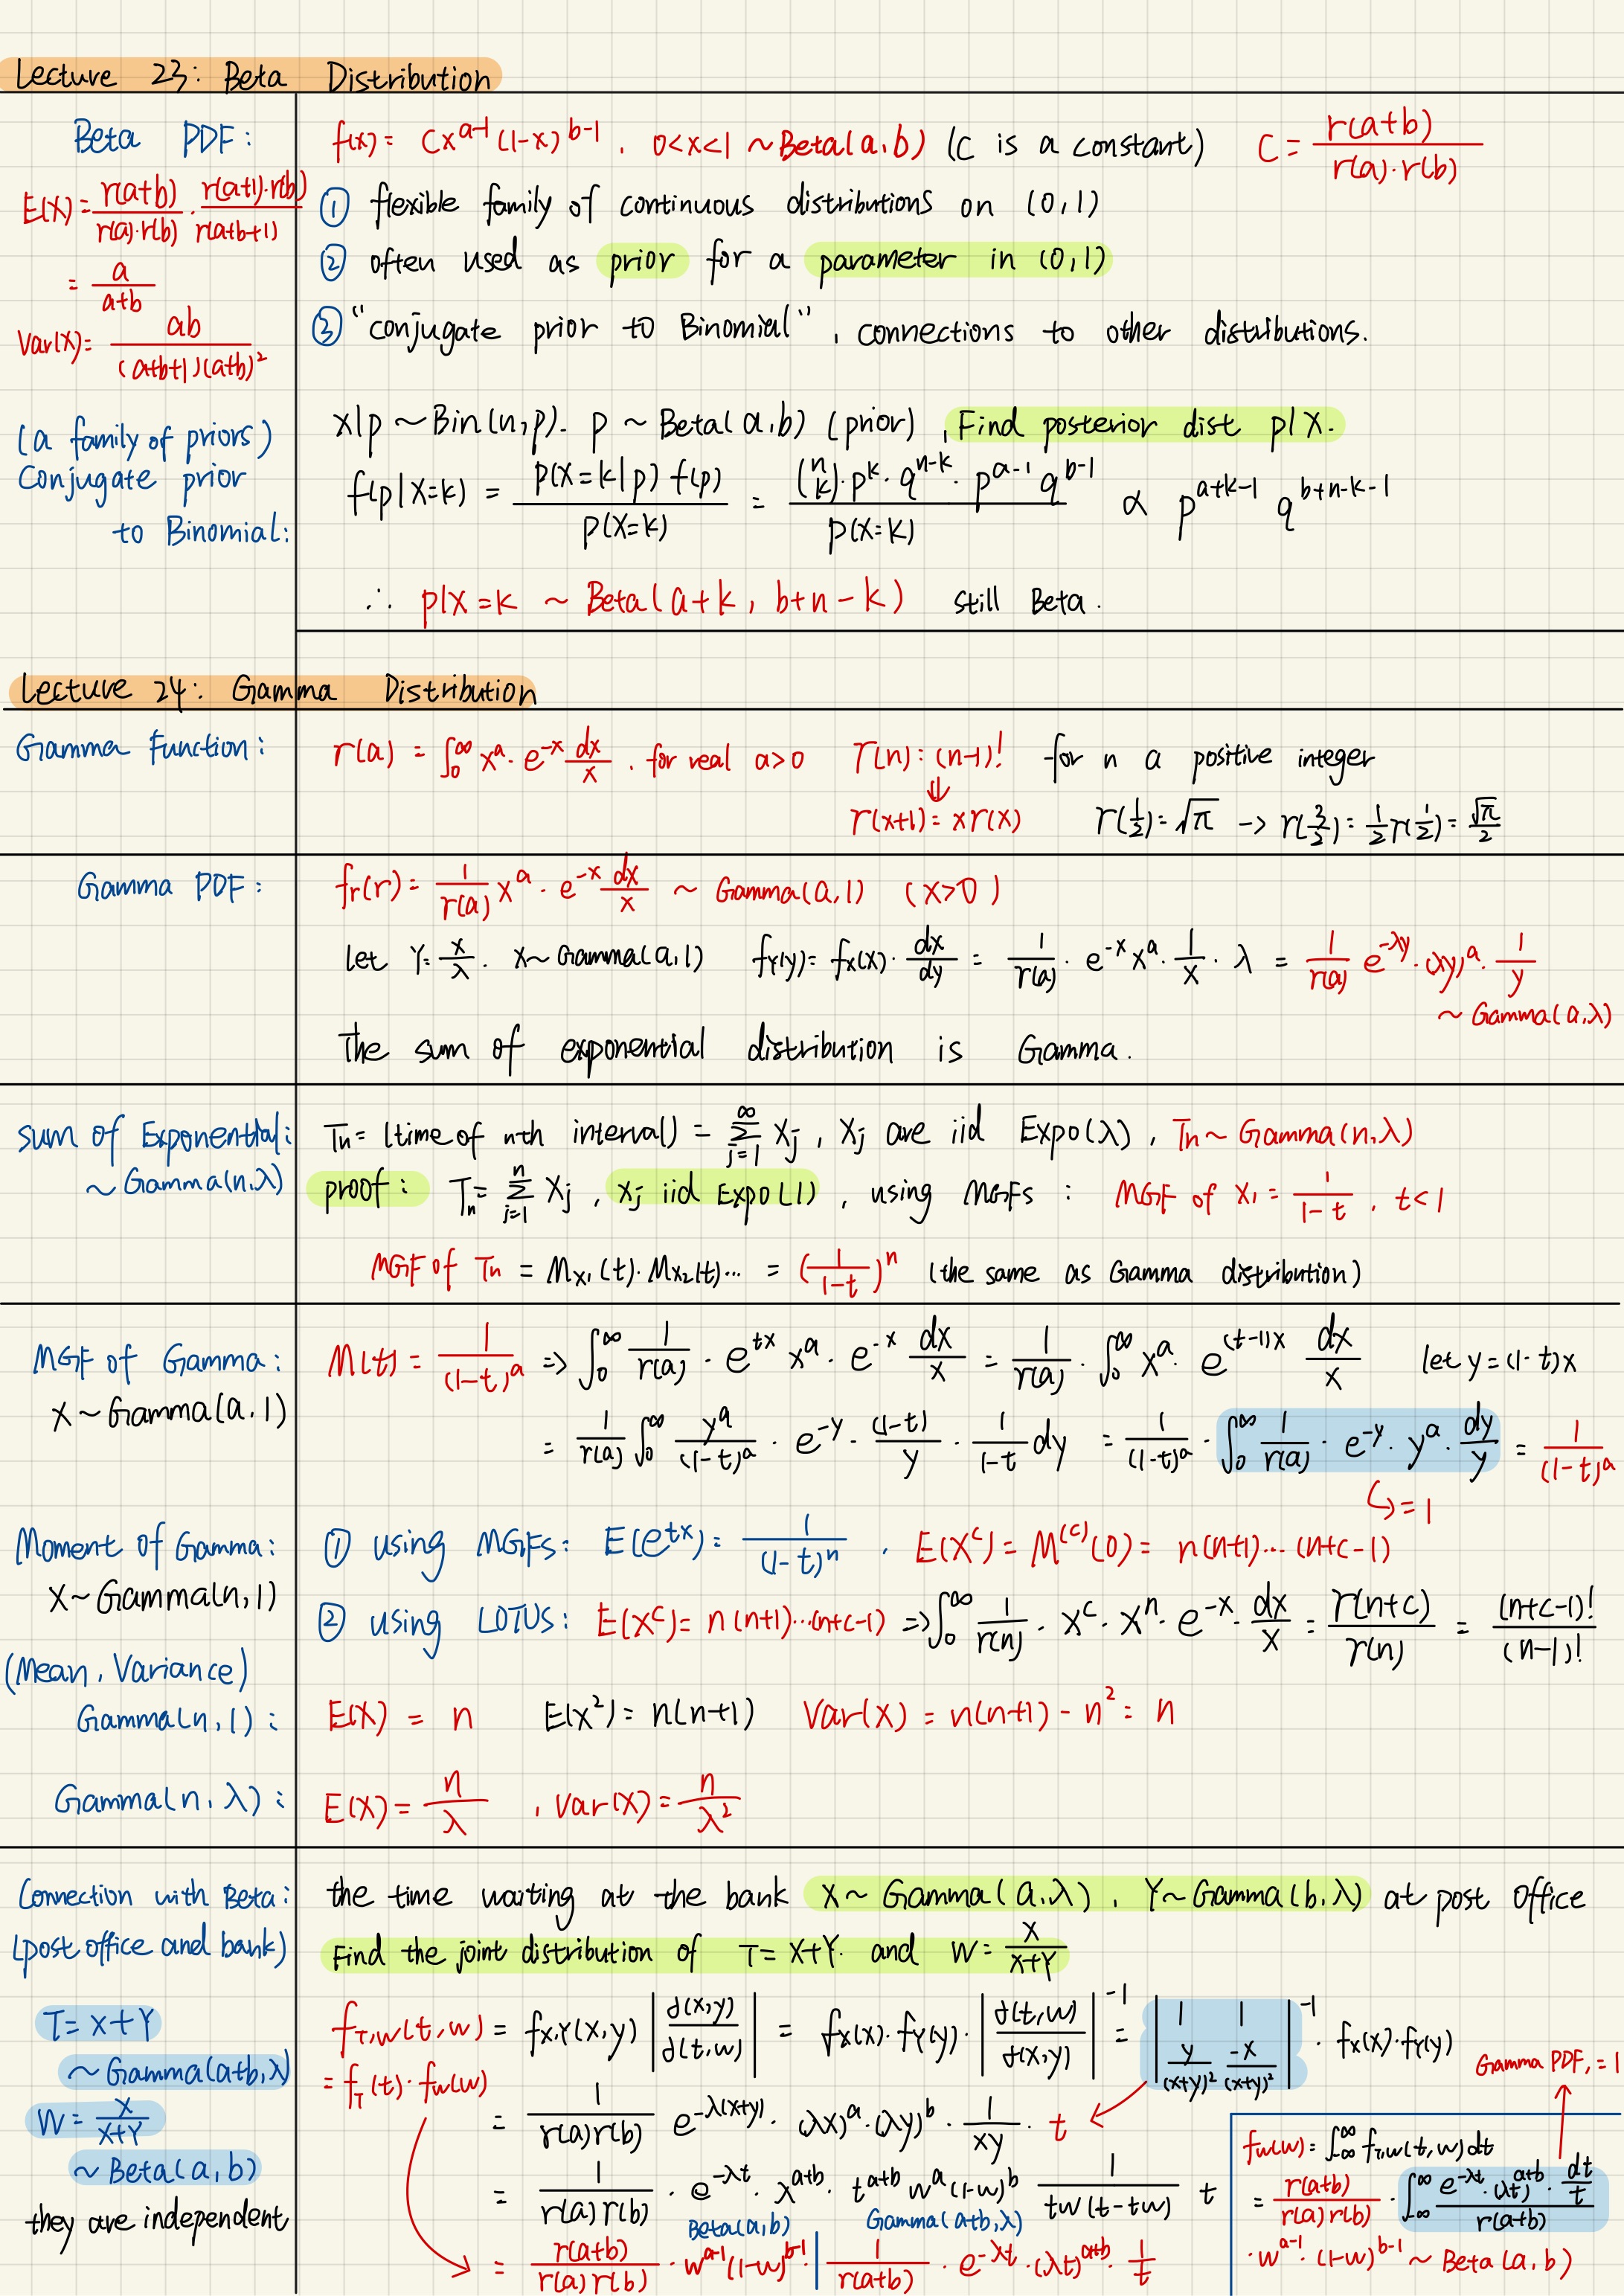 Lecture 23: Beta Distribution
Beta PDF:
f(x) = Cx^{a-1}(1-x)^{b-1}, 0<x<1 ~Beta(a,b) (C is a constant) C = r(a+b)/(r(a)·r(b))
E(X) = r(a+b)/(r(a)·r(b)) · r(a+1)·r(b)/r(a+b+1)
= a/(a+b)
Var(X) = ab/((a+b+1)(a+b)^2)
① flexible family of continuous distributions on (0,1)
② often used as prior for a parameter in (0,1)
③ "conjugate prior to Binomial", connections to other distributions.
(a family of priors)
Conjugate prior
to Binomial:
X|p ~Bin(n,p). p ~ Beta(a,b) (prior), Find posterior dist p|X.
f(p|X=k) = P(X=k|p) f(p)/P(X=k) = (n k)·p^k·q^{n-k}·p^{a-1} q^{b-1}/P(X=k) ∝ p^{a+k-1} q^{b+n-k-1}
∴ p|X=k ~ Beta(a+k, b+n-k) still Beta.
Lecture 24: Gamma Distribution
Gamma Function:
r(a) = ∫_0^∞ x^a·e^{-x} dx/x, for real a>0 r(n) = (n-1)! for n a positive integer
⇓
r(x+1) = x r(x) r(1/2) = √π -> r(3/2) = 1/2 r(1/2) = √π/2
Gamma PDF:
f_r(r) = 1/r(a) x^a·e^{-x} dx/x ~ Gamma(a,1) (x>0)
let Y = x/λ. X~Gamma(a,1) f_Y(y) = f_X(x)·dx/dy = 1/r(a)·e^{-x} x^a·1/x·λ = 1/r(a) e^{-λy}·(λy)^a·1/y
~ Gamma(a,λ)
The sum of exponential distribution is Gamma.
Sum of Exponential:
~ Gamma(n,λ)
Tn = (time of nth interval) = ∑_{j=1}^∞ Xj, Xj are iid Expo(λ), Tn ~ Gamma(n,λ)
proof: Tn = ∑_{j=1}^n Xj, Xj iid Expo(1), using MGFs: MGF of X1 = 1/(1-t), t<1
MGF of Tn = M_{X1}(t)·M_{X2}(t)··· = (1/(1-t))^n (the same as Gamma distribution)
MGF of Gamma:
X ~ Gamma(a,1)
M(t) = 1/(1-t)^a => ∫_0^∞ 1/r(a)·e^{tx} x^a·e^{-x} dx/x = 1/r(a)·∫_0^∞ x^a·e^{(t-1)x} dx/x let y = (1-t)x
= 1/r(a) ∫_0^∞ y^a/(1-t)^a·e^{-y}·(1-t)/y·1/(1-t) dy = 1/(1-t)^a·∫_0^∞ 1/r(a)·e^{-y}·y^a·dy/y = 1/(1-t)^a
↳ = 1
Moment of Gamma:
X ~ Gamma(n,1)
① using MGFs: E(e^{tx}) = 1/(1-t)^n, E(X^c) = M^{(c)}(0) = n(n+1)···(n+c-1)
② using LOTUS: E(X^c) = n(n+1)···(n+c-1) => ∫_0^∞ 1/r(n)·x^c·x^n·e^{-x}·dx/x = r(n+c)/r(n) = (n+c-1)!/(n-1)!
(Mean, Variance)
Gamma(n,1):
E(X) = n E(X^2) = n(n+1) Var(X) = n(n+1) - n^2 = n
Gamma(n,λ):
E(X) = n/λ, Var(X) = n/λ^2
Connection with Beta:
(post office and bank)
the time waiting at the bank X~Gamma(a,λ), Y~Gamma(b,λ) at post office
Find the joint distribution of T = X+Y. and W = X/(X+Y)
T = X+Y
~ Gamma(a+b,λ)
W = X/(X+Y)
~ Beta(a,b)
they are independent
f_{T,W}(t,w) = f_{X,Y}(x,y) |∂(x,y)/∂(t,w)| = f_X(x)·f_Y(y)·|∂(t,w)/∂(x,y)|^{-1} = |1 1 y/(x+y)^2 -x/(x+y)^2|^{-1}·f_X(x)·f_Y(y)
= f_T(t)·f_W(w)
= 1/(r(a)r(b)) e^{-λ(x+y)}·(λx)^a·(λy)^b·1/xy·t
= 1/(r(a)r(b))·e^{-λt}·λ^{a+b}·t^{a+b} w^a (1-w)^b 1/(tw(t-tw)) t
Beta(a,b) Gamma(a+b,λ)
= r(a+b)/(r(a)r(b))·w^{a-1}(1-w)^{b-1}·| 1/r(a+b)·e^{-λt}·(λt)^{a+b}·1/t
Gamma PDF, = 1
f_W(w) = ∫_{-∞}^∞ f_{T,W}(t,w) dt
= r(a+b)/(r(a)r(b))·∫_{-∞}^∞ e^{-λt}·(λt)^{a+b}·dt/t / r(a+b)
·w^{a-1}·(1-w)^{b-1} ~ Beta(a,b)